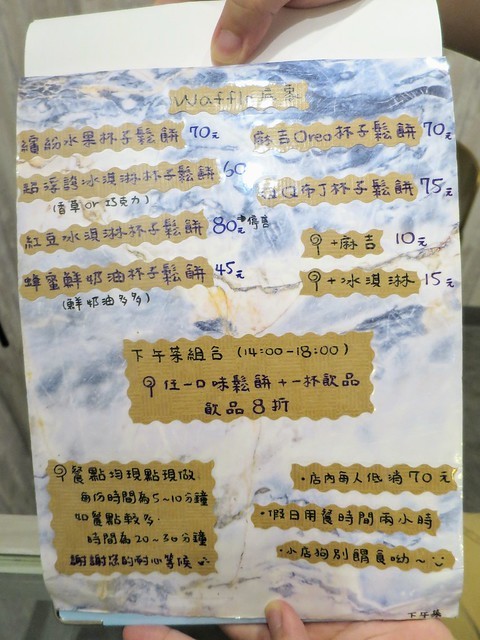 Waffle 店零
繽紛水果杯子鬆餅 70元
麻吉Oreo杯子鬆餅 70元
超浮誇冰淇淋杯子鬆餅 60
(香草or巧克力)
布丁杯子鬆餅 75元
紅豆冰淇淋杯子鬆餅 80元 停售
+麻吉 10元
蜂蜜鮮奶油杯子鬆餅 45元
(鮮奶油多多)
+冰淇淋 15元
下午茶組合 (14:00-18:00)
任一口味鬆餅+一杯飲品
飲品8折
餐點均現點現做
每份時間為5~10分鐘
如餐點較多
時間為20~30分鐘
謝謝您的耐心等候
·店內每人低消70元
·假日用餐時間兩小時
·小店狗別餵食呦~
下午茶